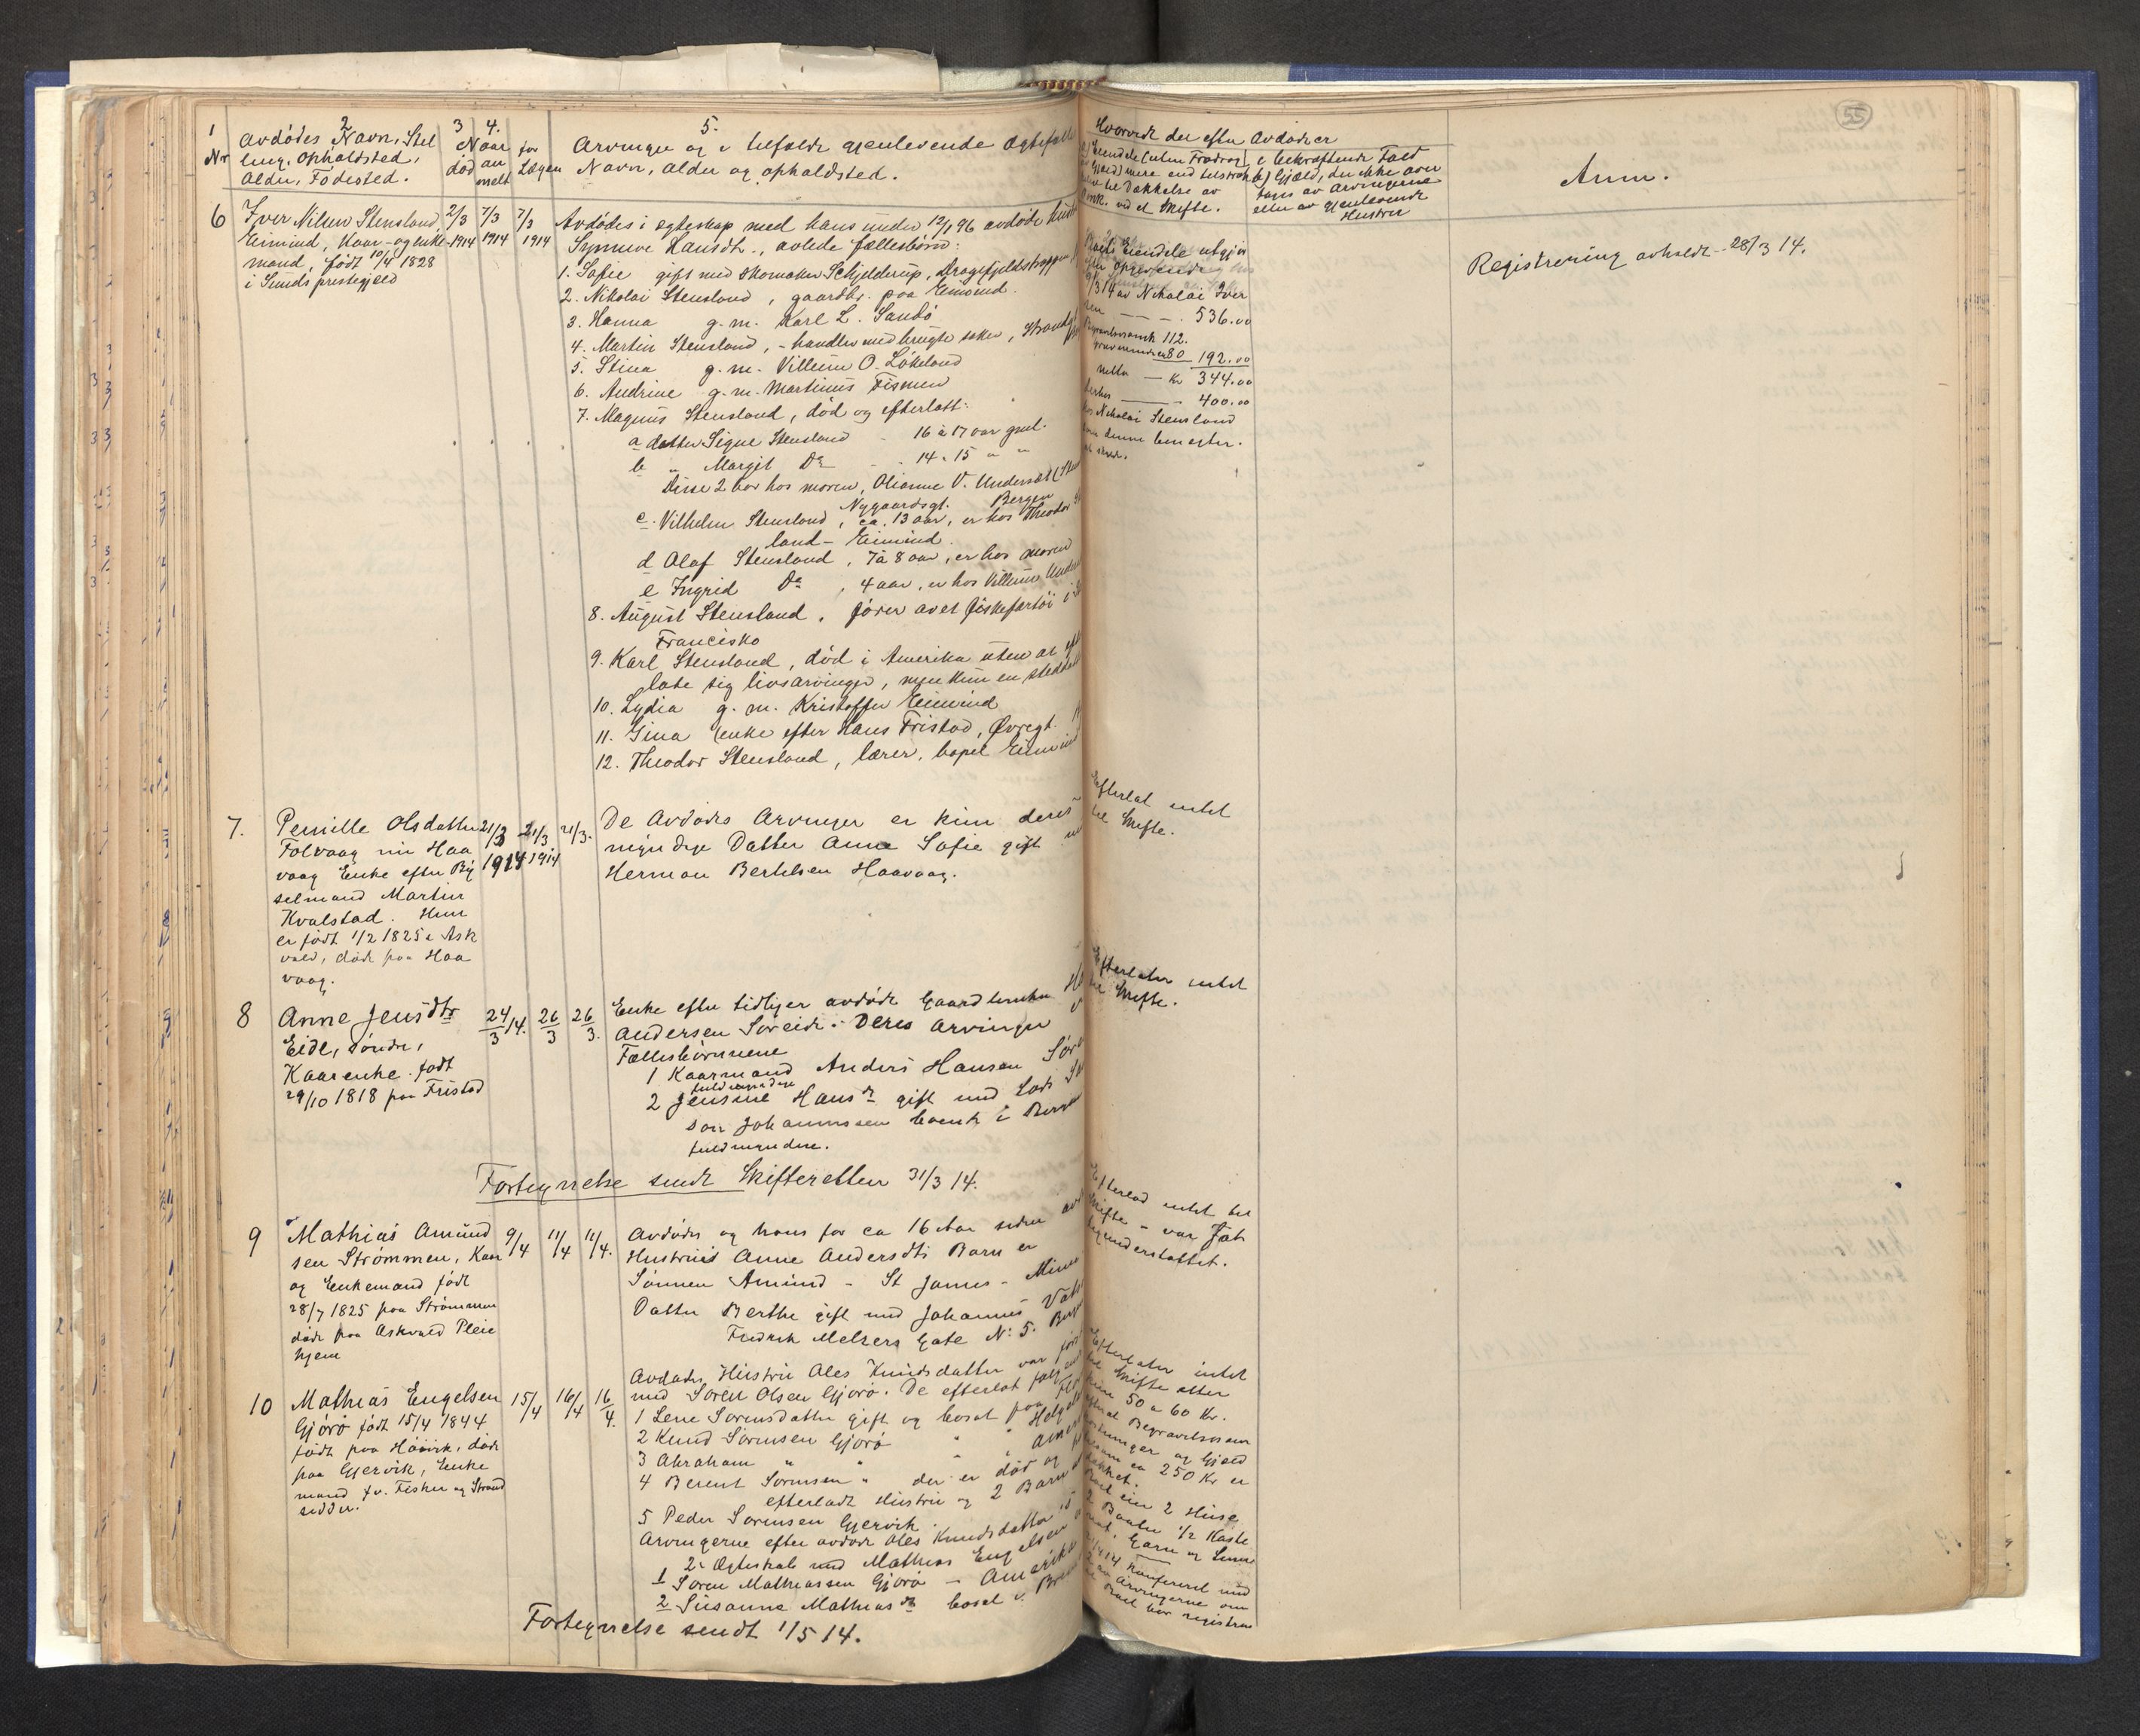 55
1 2 3 4. 5.
Nr Avdødes Navn, Stel
ling, Opholdsted,
Alder, Fødested.
Naar
død an
meldt
for
Lægen
Arvinger og i tilfælde gjenlevende Ægtefælle
Navn, alder og opholdsted.
Hvorvidt der efter Avdøde er
a) Eiendele (uten Fradrag
Gjæld) mere end tilstræk
til Dækkelse av
omk. ved et Skifte.
i bekræftende Fald
b) Gjæld, der ikke over
tages av Arvingerne
eller av gjenlevende
Hustru
Anm.
6 Iver Nilsen Stensland,
Eimind, Kaar- og enke-
mand, født 10/4 1828
i Sunds prestegjeld
2/3 1914
7/3 1914
7/3 1914
Avdødes i egteskap med hans under 12/1 96 avdøde hustru
Synneve Hansdtr., avlede fællesbörn:
1. Sofie gift med skomaker Schjelderup, Dragefjeldstrappen
2. Nikolai Stensland, gaardbr. paa Eimind.
3. Hanna g. m. Karl L. Sandö
4. Martin Stensland, - handler med brugte saker,
5. Stina g. m. Villum O. Lökeland
6. Andrine g. m. Martinus Tismen
7. Magnus Stensland, död og efterlatt:
a datter Signe Stensland - 16 à 17 aar gml.
b " Margit Do - 14 " 15 " "
Disse 2 bor hos moren, Olianne V. Undersæt
Nygaardsgt. Bergen
c. Vilhelm Stensland, ca. 13 aar, er hos Theodor
land - Eimind.
d Olaf Stensland, 7 à 8 aar, er hos moren
e Ingrid Do, 4 aar, er hos Villum
8. August Stensland, förer av et fiskefartöi i
Francisko
9. Karl Stensland, död i Amerika uten at
late sig livsarvinger, men kun en
10. Lydia g. m. Kristoffer Eimind
11. Gina enke efter Hans Fristad, Øvregt.
12. Theodor Stensland, lærer, bopel Eimind
Boets Eiendele utgjør
efter opgivende
9/3 14 av Nikolai Iver
sen — — — . 536.00
112.
80 192.00
netto — Kr 344.00
400.00
hos Nikolai Stensland
denne benegter.
Registrering avholdt - 28/3 14.
7. Pernille Olsdatter
Folvaag nu Haa
vaag Enke efter Byg
selmand Martin
Kvalstad. Hun
er født 1/2 1825 i Ask
vold, døde paa Haa
vaag.
21/3 1914
21/3 1914
21/3.
De Avdødes Arvinger er kun deres
myndige Datter Anne Sofie gift
Herman Bertelsen Haavaag.
Efterlat intet
til Skifte.
8 Anne Jensdtr
Eide, søndre,
Kaarenke. født
29/10 1818 paa Fristad
24/3 14.
26/3
26/3.
Enke efter tidligere avdøde Gaardbruker
Andersen Søreide. Deres Arvinger
Fællesbørnene
1 Kaarmand Anders Hansen
fuldmyndige
2 Jensine Hansdr gift med Lods
son Johannessen boende i
fuldmyndige.
Efterlater intet
til Skifte.
Fortegnelse sendt Skifteretten 31/3 14.
9 Mathias Amund
sen Strømmen, Kaar
og Enkemand født
28/7 1825 paa Strømmen
døde paa Askvold Pleie
hjem
9/4
11/4
11/4.
Avdødes og hans for ca 16 Aar siden
Hustrus Anne Andersdtrs Barn er
Sønnen Amund - St James -
Datter Berthe gift med Johannes
Fredrik Meltzers Gate No 5.
Efterlod intet til
Skifte - var Fat
tigunderstøttet.
10 Mathias Engelsen
Gjørø født 15/4 1844
født paa Høivik, døde
paa Gjervik, Enke
mand fv. Fisker og Strand
sidder.
15/4
16/4
16/4.
Avdødes Hustru Ales Knudsdatter var
med Søren Olsen Gjørø. De efterlot
1 Lene Sørensdatter gift og bosat paa
2 Knud Sørensen Gjørø "
3 Abraham " " "
4 Berent Sørensen " der er død og
efterladt Hustru og 2 Barn
5 Peder Sørensen Gjervik
Arvingerne efter avdøde Ales Knudsdatter
2' Ægteskab med Mathias Engelsen
1 Søren Mathiassen Gjørø - Amerika
2 Susanna Mathiasdr bosat i
Efterlater intet
til Skifte efter
50 a 60 Kr.
Begravelsesom
kostninger og Gjæld
ca 250 Kr er
dækket.
2 Huse
2 Baater 1/2 Kaste
not, Garn og
Konfereret med
Arvingerne om
Boet bør registre
Fortegnelse sendt 1/5 14.